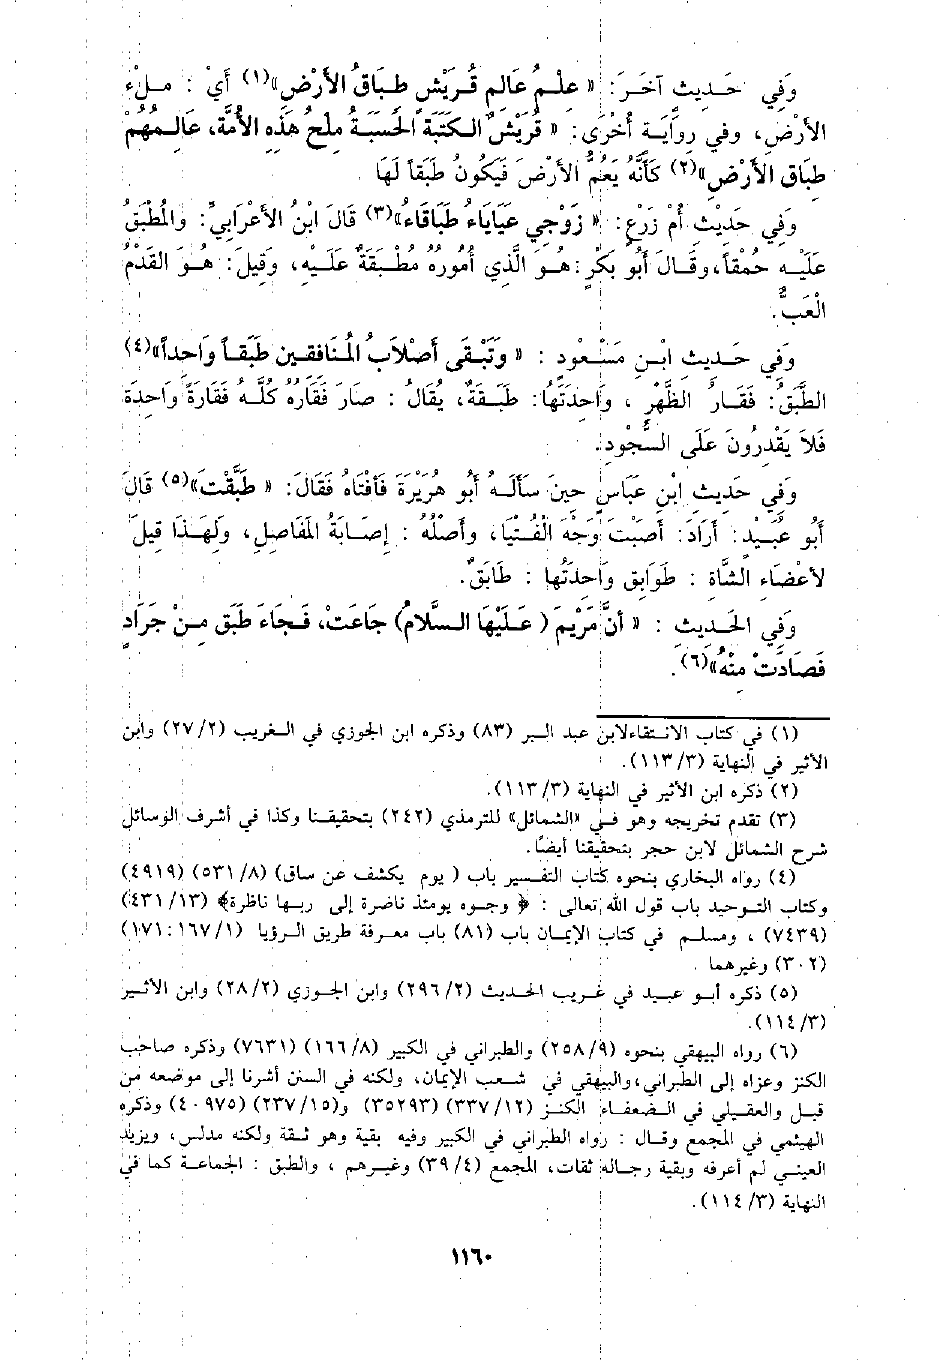 وَفِي حَدِيثٍ آخَرَ: « عِلْمُ عَالِمِ قُرَيْشٍ طِبَاقُ الأَرْضِ»(١) أَيْ : مِلْءَ
الأَرْضِ، وفي رِوَايَةٍ أُخْرَى: « قُرَيْشٌ الكَتَبَةُ الحَسَبَةُ مِلْحُ هَذِهِ الأُمَّةِ، عَالِمُهُمْ
طِبَاق الأَرْضِ»(٢) كَأَنَّهُ يَعُمُّ الأرْضَ فَيَكُونُ طَبَقاً لَهَا .
وَفِي حَدِيْثِ أُمِّ زَرْعٍ: « زَوْجِي عَيَايَاءُ طَبَاقَاءُ»(٣) قَالَ ابْنُ الأَعْرَابِيِّ: والمُطْبَقُ
عَلَيْهِ حُمْقاً، وقَالَ أَبُو بَكْرٍ: هُوَ الَّذِي أُمُورُهُ مُطْبَقَةٌ عَلَيْهِ، وَقِيلَ: هُوَ الفَدْمُ
الْعَبُّ.
وَفِي حَدِيث ابْنِ مَسْعُودٍ : « وَتَبْقَى أَصْلاَبُ المُنَافِقِين طَبَقاً وَاحِداً»(٤)
الطَّبَقُ: فَقَارُ الظَّهْرِ ، وَاحِدَتُهَا: طَبَقَةٌ، يقَالُ : صَارَ فَقَارُهُ كُلُّهُ فَقَارَةً وَاحِدَةً
فَلاَ يَقْدِرُونَ عَلَى السُّجُودِ.
وَفِي حَدِيثِ ابْنِ عَبَّاسٍ حِينَ سَأَلَهُ أَبُو هُرَيْرَةَ فَأَفْتَاهُ فَقَالَ: « طَبَّقْتَ»(٥) قَالَ
أَبُو عُبَيْدٍ: أَرَادَ: أَصَبْتَ وَجْهَ الْفُتْيَا، وأَصْلُهُ : إصَابَةُ المَفَاصِلِ، ولِهَذَا قِيلَ
لأَعْضَاءِ الشَّاةِ : طَوَابِق وَاحِدَتُهَا : طَابَقٌ.
وَفِي الحَدِيثِ : « أَنَّ مَرْيَمَ ( عَلَيْهَا السَّلاَمُ) جَاعَتْ، فَجَاءَ طَبَق مِنْ جَرَادٍ
فَصَادَتْ مِنْهُ»(٦).
(١) في كتاب الانتقاء لابن عبد البر (٨٣) وذكره ابن الجوزي في الغريب (٢٧/٢) وابن
الأثير في النهاية (١١٣/٣).
(٢) ذكره ابن الأثير في النهاية (١١٣/٣).
(٣) تقدم تخريجه وهو في «الشمائل» للترمذي (٢٤٢) بتحقيقنا وكذا في أشرف الوسائل
شرح الشمائل لابن حجر بتحقيقنا أيضاً.
(٤) رواه البخاري بنحوه كتاب التفسير باب ( يوم يكشف عن ساق) (٥٣١/٨) (٤٩١٩)
وكتاب التوحيد باب قول الله تعالى : ﴿ وجوه يومئذ ناضرة إلى ربها ناظرة﴾ (٤٣١/١٣)
(٧٤٣٩) ، ومسلم في كتاب الإيمان باب (٨١) باب معرفة طريق الرؤيا (١٦٧/١: ١٧١)
(٣٠٢) وغيرهما .
(٥) ذكره أبو عبيد في غريب الحديث (٢٩٦/٢) وابن الجوزي (٢٨/٢) وابن الأثير
(١١٤/٣).
(٦) رواه البيهقي بنحوه (٢٥٨/٩) والطبراني في الكبير (١٦٦/٨) (٧٦٣١) وذكره صاحب
الكنز وعزاه إلى الطبراني، والبيهقي في شعب الإيمان، ولكنه في السنن أشرنا إلى موضعه من
قبل والعقيلي في الضعفاء: الكنز (٣٣٧/١٢) (٣٥٢٩٣) و(٢٣٧/١٥) (٤٠٩٧٥) وذكره
الهيثمي في المجمع وقال : رواه الطبراني في الكبير وفيه بقية وهو ثقة ولكنه مدلس، ويزيد
العيني لم أعرفه وبقية رجاله ثقات، المجمع (٣٩/٤) وغيرهم ، والطبق : الجماعة كما في
النهاية (١١٤/٣).
١١٦٠